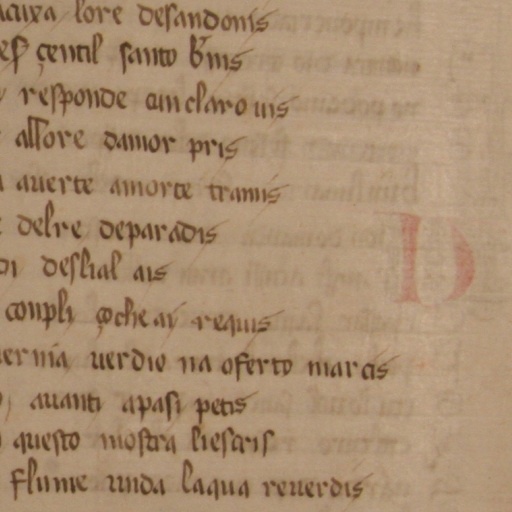 lore desandonis
çentil santo b'nis
responde an claro uis
assore damor pris
auerte amorte tramis
delre deparadis
di deslial ais
conpli çoche ai requis
uernia uerdio na oferto marcis
auanti apasi petis
questo mostra liescris
flume unda laqua reuerdis
D